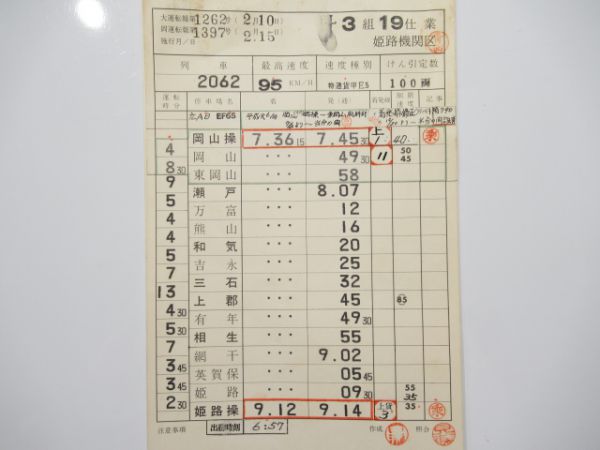 大運転第1262号(2月10日)
岡運転第1397号(2.15)
施行月/日
3組19仕業
姫路機関区
列車 最高速度 速度種別 けん引定数
2062 95 KM/H 特通貨甲E5 100両
運転時分 停車場名 着 発(通) 着発線 制限速度 記事
EF65
岡山操 7.36 15 7.45 30 上1 40. 乗
4 岡山 ・・・ 49 30 11 50 45
8 30 東岡山 ・・・ 58
9 瀬戸 ・・・ 8.07
5 万富 ・・・ 12
4 熊山 ・・・ 16
4 和気 ・・・ 20
5 吉永 ・・・ 25
7 三石 ・・・ 32
13 上郡 ・・・ 45 85
4 30 有年 ・・・ 49 30
5 30 相生 ・・・ 55
7 網干 ・・・ 9.02
3 45 英賀保 ・・・ 05 45
3 45 姫路 ・・・ 09 30 55 35
2 30 姫路操 9.12 9.14 上貨3 35. 乗
注意事項 出勤時刻 6:57 作成 照合